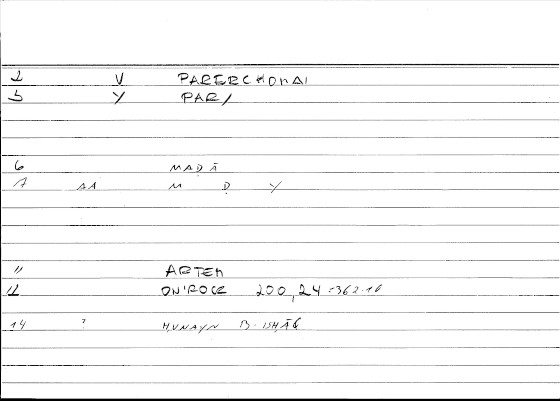 2 V PARERCHOMAI
3 Y PAR/
6 MAḌĀ
7 AA M Ḍ Y
11 ARTEM
12 ON'ROCR 200,24 = 362.10
14 ? ḤUNAYN B. ISḤĀQ